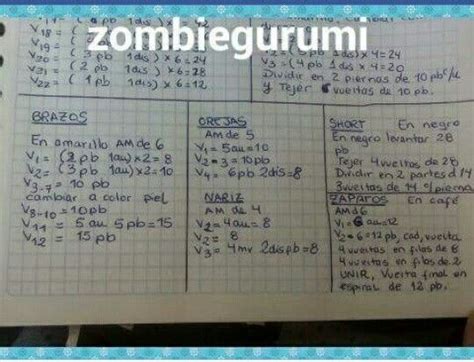 zombiegurumi
V18 = (
V19 =
V20 = ( 2 pb 1dis) x 6 = 24
V21 = ( 2 pb 1dis) x 6 = 28
V22 = ( 1 pb 1dis) x 6 = 12
V2 = (5 pb 1dis) x 4 = 24
V3 = (4 pb 1 dis x 4 = 20
Dividir en 2 piernas de 10 pb c/u
y Tejer 6 vueltas de 10 pb.
BRAZOS
En amarillo AM de 6
V1 = (2 pb 1au) x 2 = 8
V2 = (3 pb 1au) x 2 = 10
V3-7 = 10 pb
cambiar a color piel
V8-10 = 10 pb
V11 = 5 au 5 pb = 15
V12 = 15 pb
OREJAS
AM de 5
V1 = 5au = 10
V2-3 = 10 pb
V4 = 6 pb 2dis = 8
NARIZ
AM de 4
V1 = 4au = 8
V2 = 8
V3 = 4mv 2dis pb = 8
SHORT En negro
En negro levantar 28
pb
Tejer 4 vueltas de 28
Dividir en 2 partes d 14
3 vueltas de 14 c/ pierna
ZAPATOS En café
AM d 6
V1 = 6 au = 12
V2 = 6 = 12 pb, cad, vuelta
4 vueltas en filas de 8
4 vueltas en filas de 2
UNIR, Vuelta final en
espiral de 12 pb.